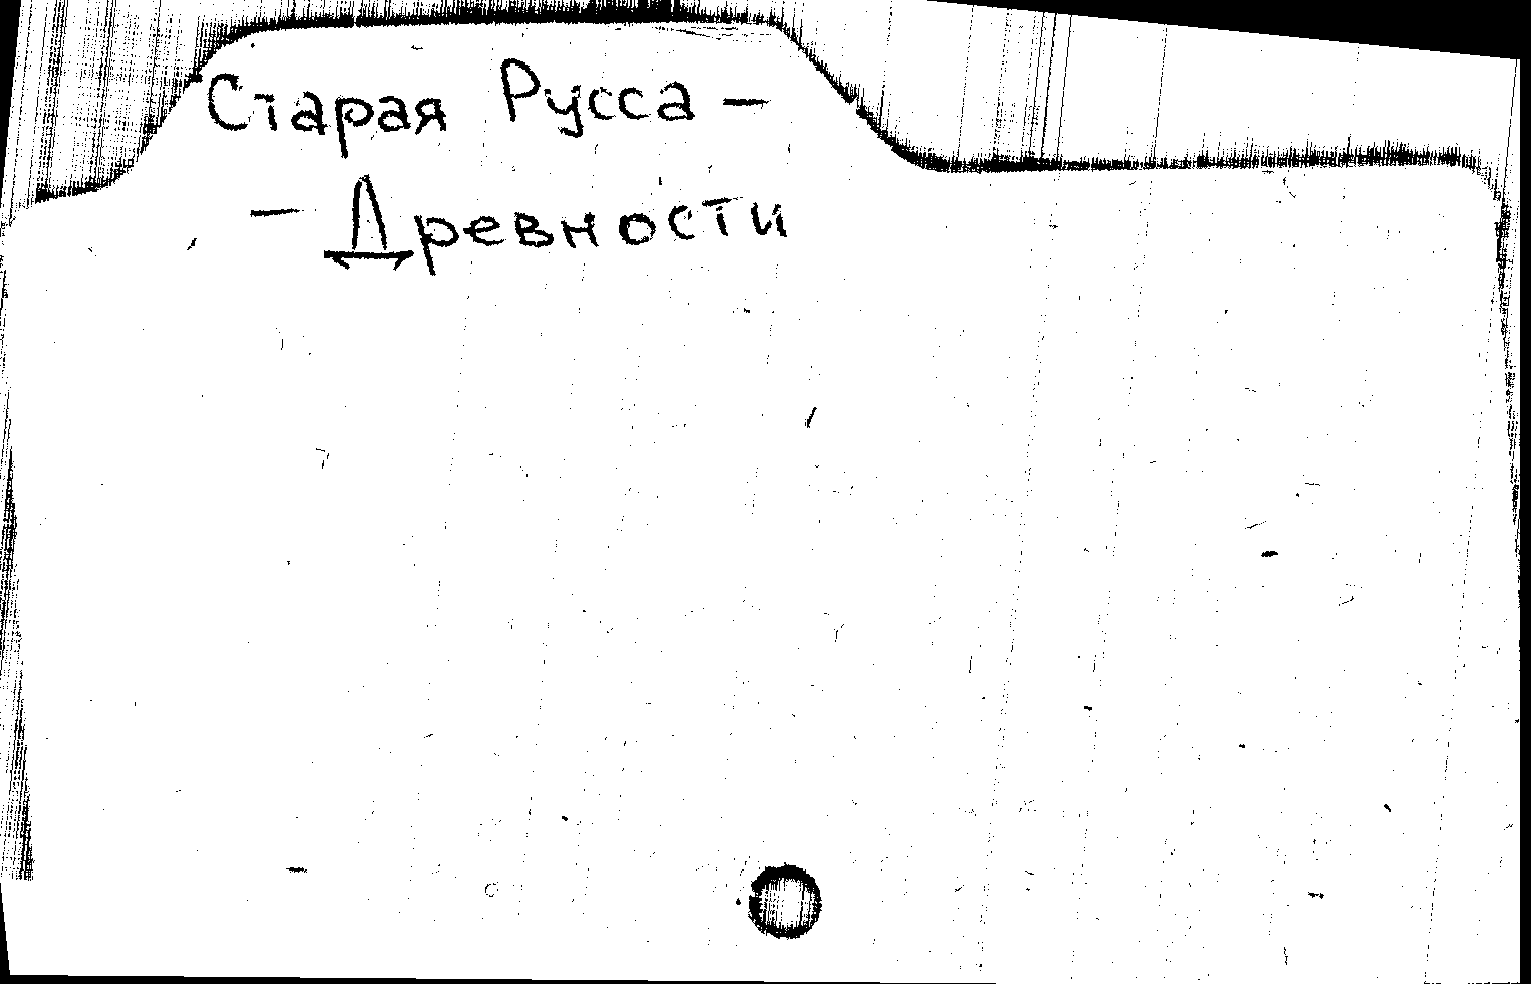 Старая Русса –
– Древности